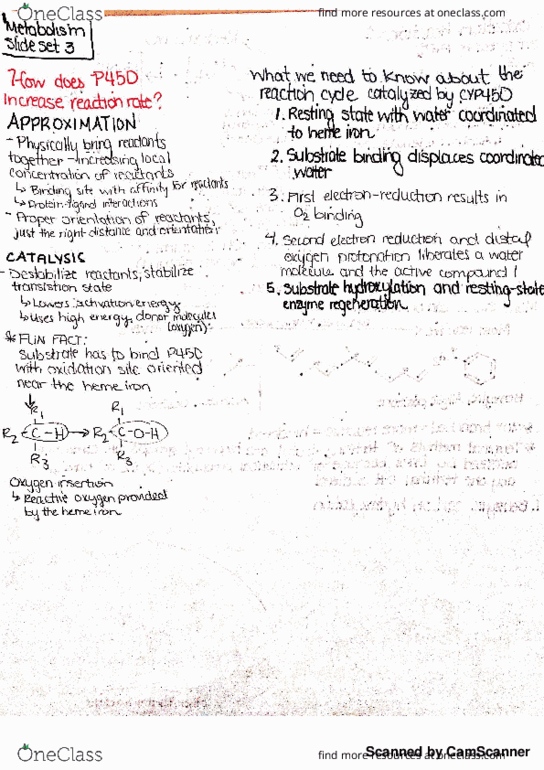 OneClass
find more resources at oneclass.com
Metabolism
Slide Set 3
How does P450
increase reaction rate?
APPROXIMATION
- Physically bring reactants
together - increasing local
concentration of reactants
↳ Binding site with affinity for reactants
↳ Protein-ligand interactions
- Proper orientation of reactants,
just the right distance and orientation!
CATALYSIS
- Destabilize reactants, stabilize
transistion state
↳ Lowers activation energy
↳ Uses high energy, donor molecules
(oxygen).
* FUN FACT:
Substrate has to bind P450
with oxidation site oriented
near the heme iron
R1 R1
R2 C-H → R2 C-O-H
R3 R3
Oxygen insertion
↳ Reactive oxygen provided
by the heme iron
What we need to know about the
reaction cycle catalyzed by CYP450
1. Resting state with water coordinated
to heme iron
2. Substrate binding displaces coordinated
water
3. First electron-reduction results in
O2 binding
4. Second electron reduction and distal
oxygen protonation liberates a water
molecule and the active compound 1
5. Substrate hydroxylation and resting-state
enzyme regeneration
OneClass
find more resources at oneclass.com
Scanned by CamScanner